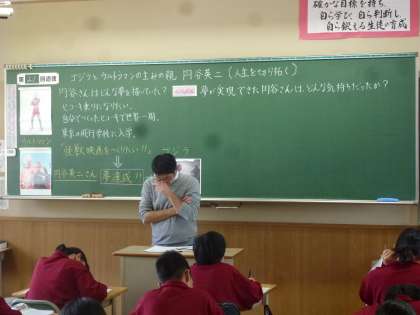 確かな目標を持ち、
自ら学び、自ら判断し、
自ら鍛える生徒の育成
ゴジラとウルトラマンの生みの親 円谷英二（人生を切り拓く）
円谷さんはどんな夢を描いていた？
夢が実現できた円谷さんは、どんな気持ちだったか？
ヒコーキ乗りになりたい。
自分でつくったヒコーキで世界一周。
東京の飛行学校に入学。
ウルトラマン
「怪獣映画をつくりたい!!」 ゴジラ
円谷英二さん 夢達成!!